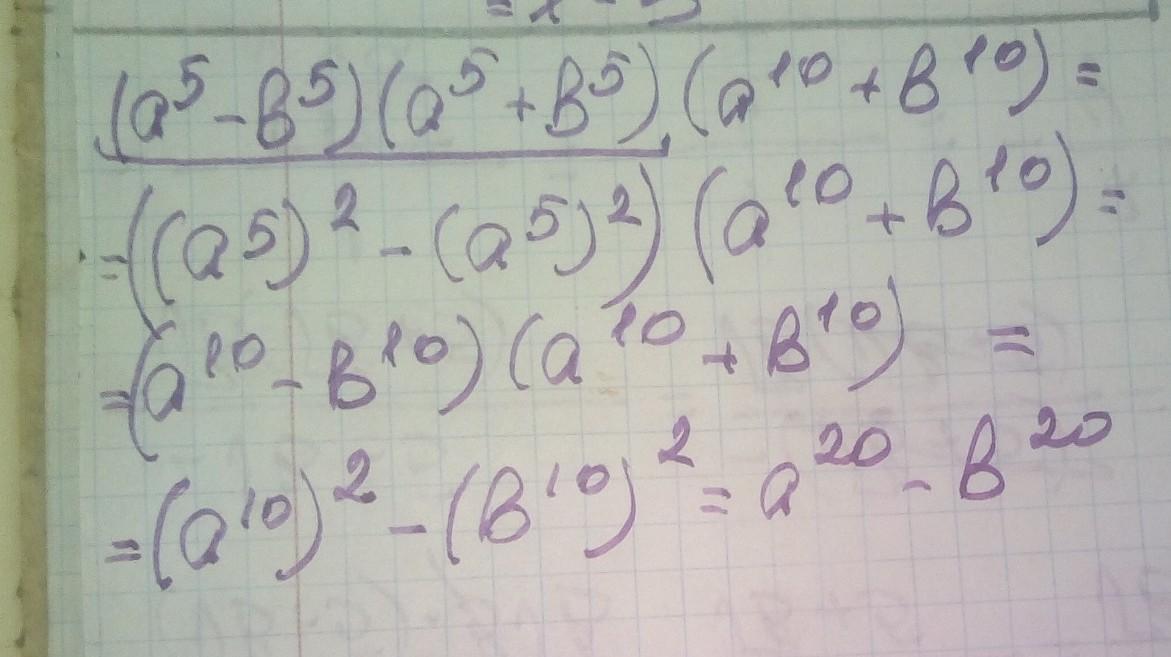 (a⁵-b⁵)(a⁵+b⁵)(a¹⁰+b¹⁰)=
=((a⁵)²-(a⁵)²)(a¹⁰+b¹⁰)=
=(a¹⁰-b¹⁰)(a¹⁰+b¹⁰)=
=(a¹⁰)²-(b¹⁰)²=a²⁰-b²⁰